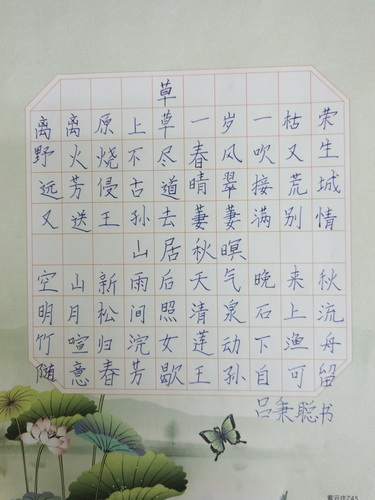 草
离离原上草一岁一枯荣
野火烧不尽春风吹又生
远芳侵古道晴翠接荒城
又送王孙去萋萋满别情
山居秋暝
空山新雨后天气晚来秋
明月松间照清泉石上流
竹喧归浣女莲动下渔舟
随意春芳歇王孙自可留
吕秉聪书